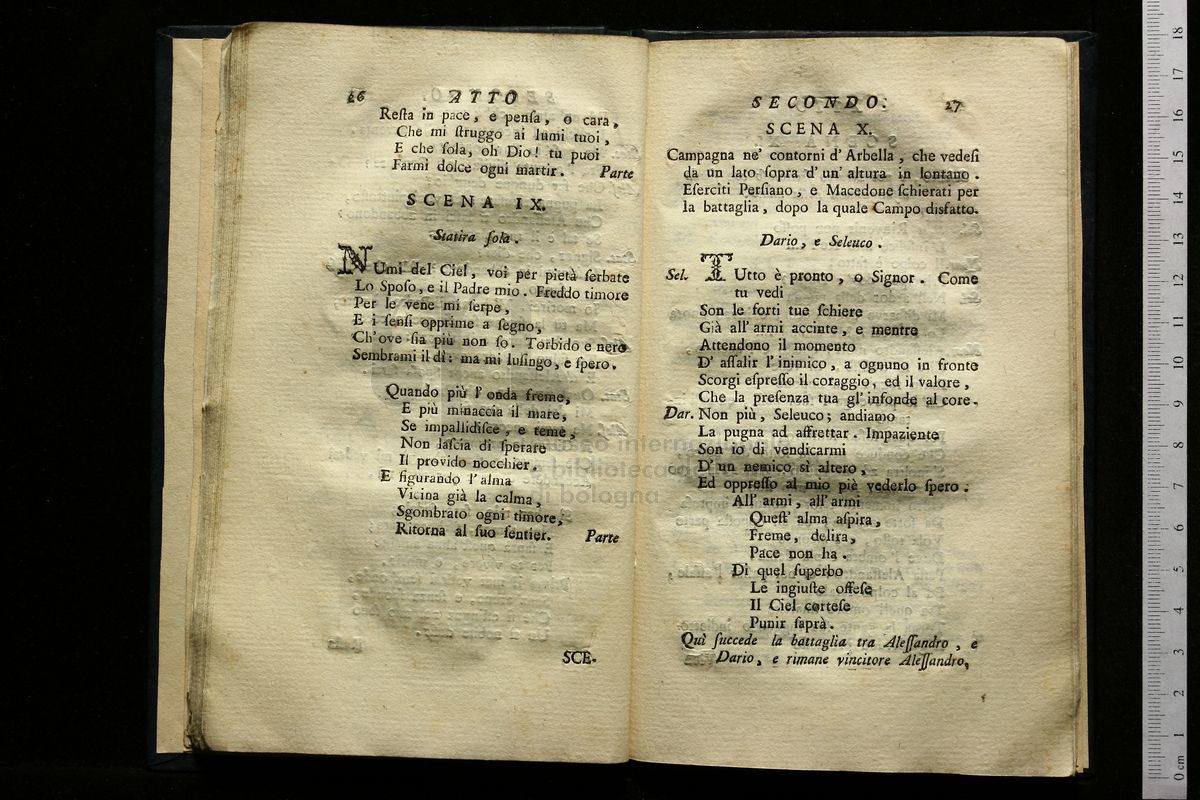 26 ATTO
Resta in pace, e pensa, o cara,
Che mi struggo ai lumi tuoi,
E che sola, oh Dio! tu puoi
Farmi dolce ogni martir. Parte
SCENA IX.
Statira sola.
NUmi del Ciel, voi per pietà serbate
Lo Sposo, e il Padre mio. Freddo timore
Per le vene mi serpe,
E i sensi opprime a segno,
Ch'ove sia più non so. Torbido e nero
Sembrami il dì: ma mi lusingo, e spero.
Quando più l'onda freme,
E più minaccia il mare,
Se impallidisce, e teme,
Non lascia di sperare
Il provido nocchier.
E figurando l'alma
Vicina già la calma,
Sgombrato ogni timore,
Ritorna al suo sentier. Parte
SCE-
SECONDO. 27
SCENA X.
Campagna ne' contorni d'Arbella, che vedesi
da un lato sopra d'un'altura in lontano.
Eserciti Persiano, e Macedone schierati per
la battaglia, dopo la quale Campo disfatto.
Dario, e Seleuco.
Sel. TUtto è pronto, o Signor. Come
tu vedi
Son le forti tue schiere
Già all'armi accinte, e mentre
Attendono il momento
D'assalir l'inimico, a ognuno in fronte
Scorgi espresso il coraggio, ed il valore,
Che la presenza tua gl'infonde al core.
Dar. Non più, Seleuco; andiamo
La pugna ad affrettar. Impaziente
Son io di vendicarmi
D'un nemico sì altero,
Ed oppresso al mio piè vederlo spero.
All'armi, all'armi
Quest'alma aspira,
Freme, delira,
Pace non ha.
Di quel superbo
Le ingiuste offese
Il Ciel cortese
Punir saprà.
Quì succede la battaglia tra Alessandro, e
Dario, e rimane vincitore Alessandro,
museo internazionale
biblioteca della musica
di bologna
0 cm 1 2 3 4 5 6 7 8 9 10 11 12 13 14 15 16 17 18